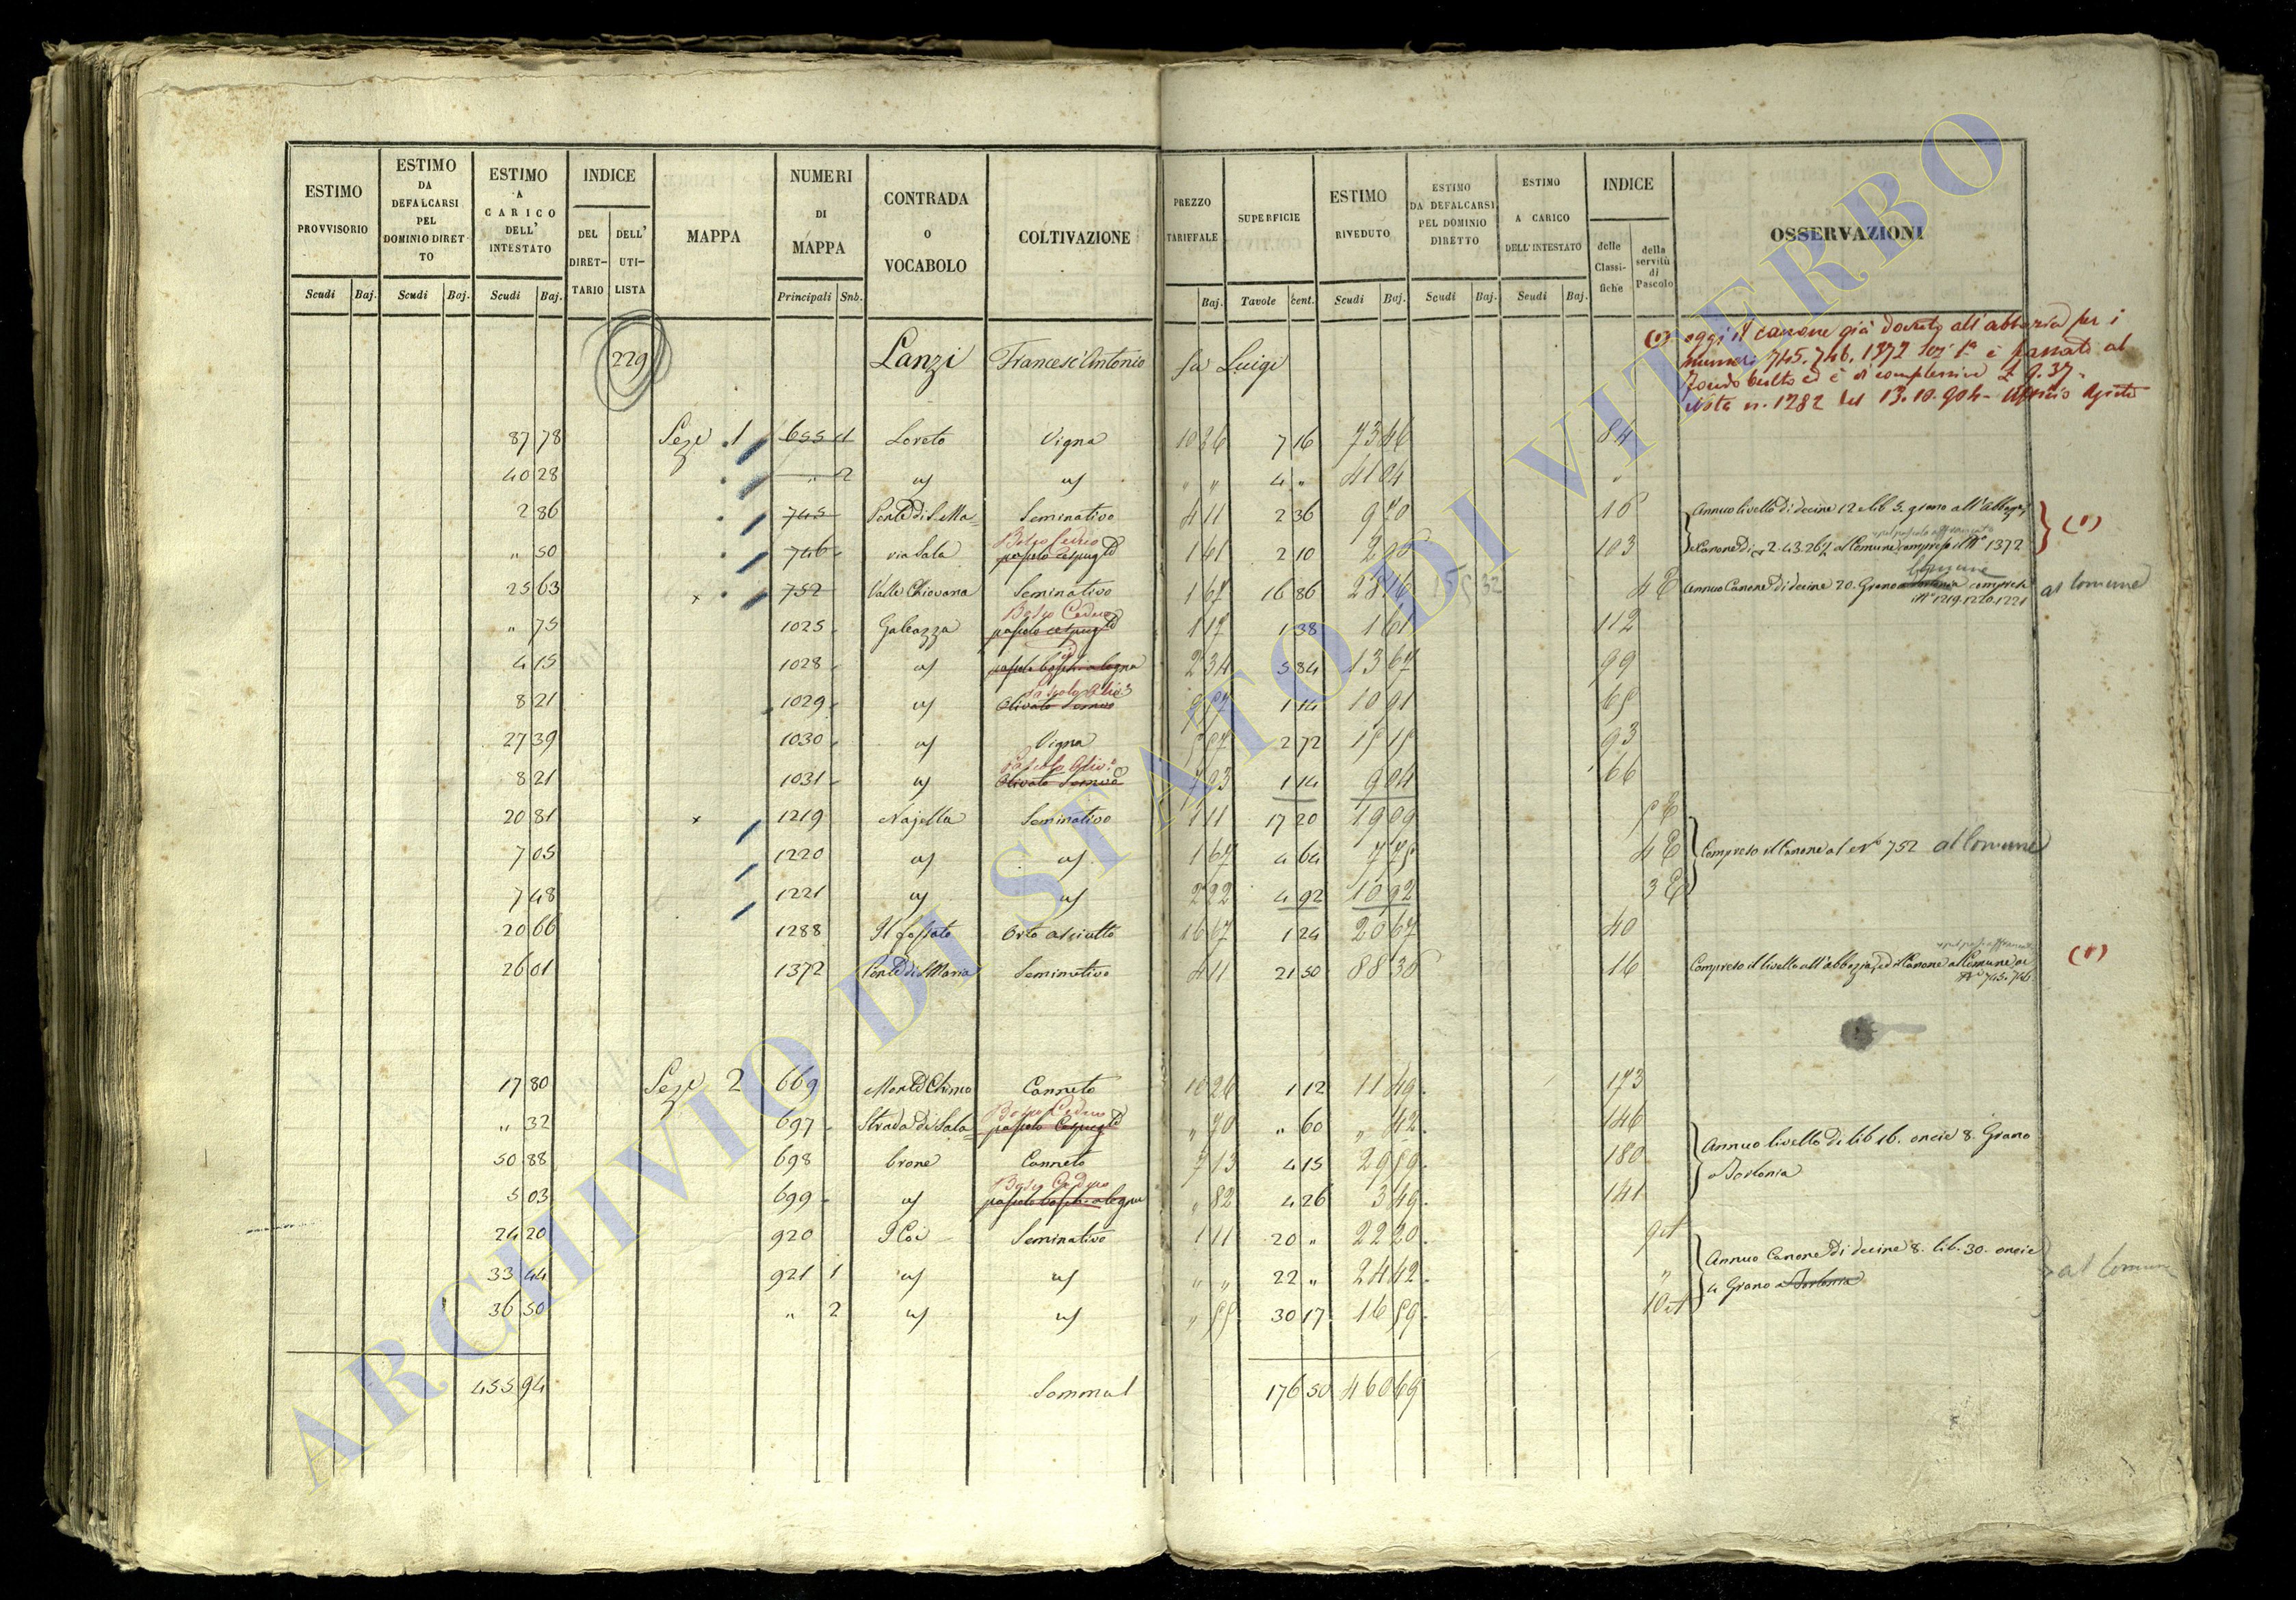 ESTIMO PROVVISORIO Scudi Baj.
ESTIMO DA DEFALCARSI PEL DOMINIO DIRET-TO Scudi Baj.
ESTIMO A CARICO DELL' INTESTATO Scudi Baj.
INDICE DEL DIRET-TARIO DELL' UTI-LISTA
MAPPA
NUMERI DI MAPPA Principali Snb.
CONTRADA O VOCABOLO
COLTIVAZIONE
PREZZO TARIFFALE Baj.
SUPERFICIE Tavole cent.
ESTIMO RIVEDUTO Scudi Baj.
ESTIMO DA DEFALCARSI PEL DOMINIO DIRETTO Scudi Baj.
ESTIMO A CARICO DELL'INTESTATO Scudi Baj.
INDICE delle Classi-fiche della servitù di Pascolo
OSSERVAZIONI
(1) oggi il canone già dovuto all'abbazia per i
numeri 745. 746. 1372 Sez 1a è passato al
Fondo Culto ed è di complessive £ 9.37.
Nota n. 1282 del 13.10.904-
229 Lanzi Francesc'Antonio fu Luigi
87 78 Seze 1 655 1 Loreto Vigna 10 26 7 16 73 46 84
40 28 " 2 " " 4 " 41 04 "
2 86 745 Ponte di S. Ma Seminativo 4 11 2 36 9 70 16 Annuo livello di decine 12 e lib 5. grano all'Abbazia (1)
" 50 746 via Sala Bosco Ceduo pascolo cespugto 1 41 2 10 103 Canone di 2.43.2 al Comune compreso il No 1372
25 63 752 Valle Chiovana Seminativo 1 67 16 86 28 16 4 E Annuo Canone di decine 20. Grano Comune compresi al Comune
i Ni 1219.1220.1221
" 75 1025 Galeazza Bosco Ceduo pascolo cespugto 1 17 1 38 1 61 112
4 15 1028 pascolo boschi a legna 2 34 5 84 13 67 99
8 21 1029 Pascolo Olivo Olivato Semivo 9 57 1 14 10 91 65
27 39 1030 Vigna 5 57 2 72 15 15 93
8 21 1031 Pascolo Olivo Olivato Semivo 7 93 1 14 9 04 66
20 81 1219 Najella Seminativo 1 11 17 20 19 09 5 E
7 05 1220 1 67 4 64 7 75 4 E Compreso il Canone al No 752 al Comune
7 48 1221 2 22 4 92 10 92 3 E
20 66 1288 Il fossato Orto asciutto 16 67 1 24 20 67 40
26 01 1372 Ponte di S Maria Seminativo 4 11 21 50 88 36 16 Compreso il livello all'abbazia, ed il Canone al Comune ai (1)
Ni 745.746
17 80 Seze 2 669 Monte Chimo Canneto 10 26 1 12 11 49 173
" 32 697 Strada di Sala Bosco Ceduo pascolo Cespugto " 70 " 60 " 42 146
50 88 698 Crone Canneto 7 13 4 15 29 59 180 Annuo livello di lib 16. oncie 8. Grano
5 03 699 Bosco Ceduo pascolo boschi a legna " 82 4 26 3 49 141
24 20 920 Seminativo 1 11 20 " 22 20 9
33 44 921 1 " " 22 " 24 42 " Annuo Canone di decine 8. lib. 30. oncie al Comune
36 50 " 2 " 55 30 17 16 59 10 4 Grano
455 94 Somma 176 50 460 69
ARCHIVIO DI STATO DI VITERBO